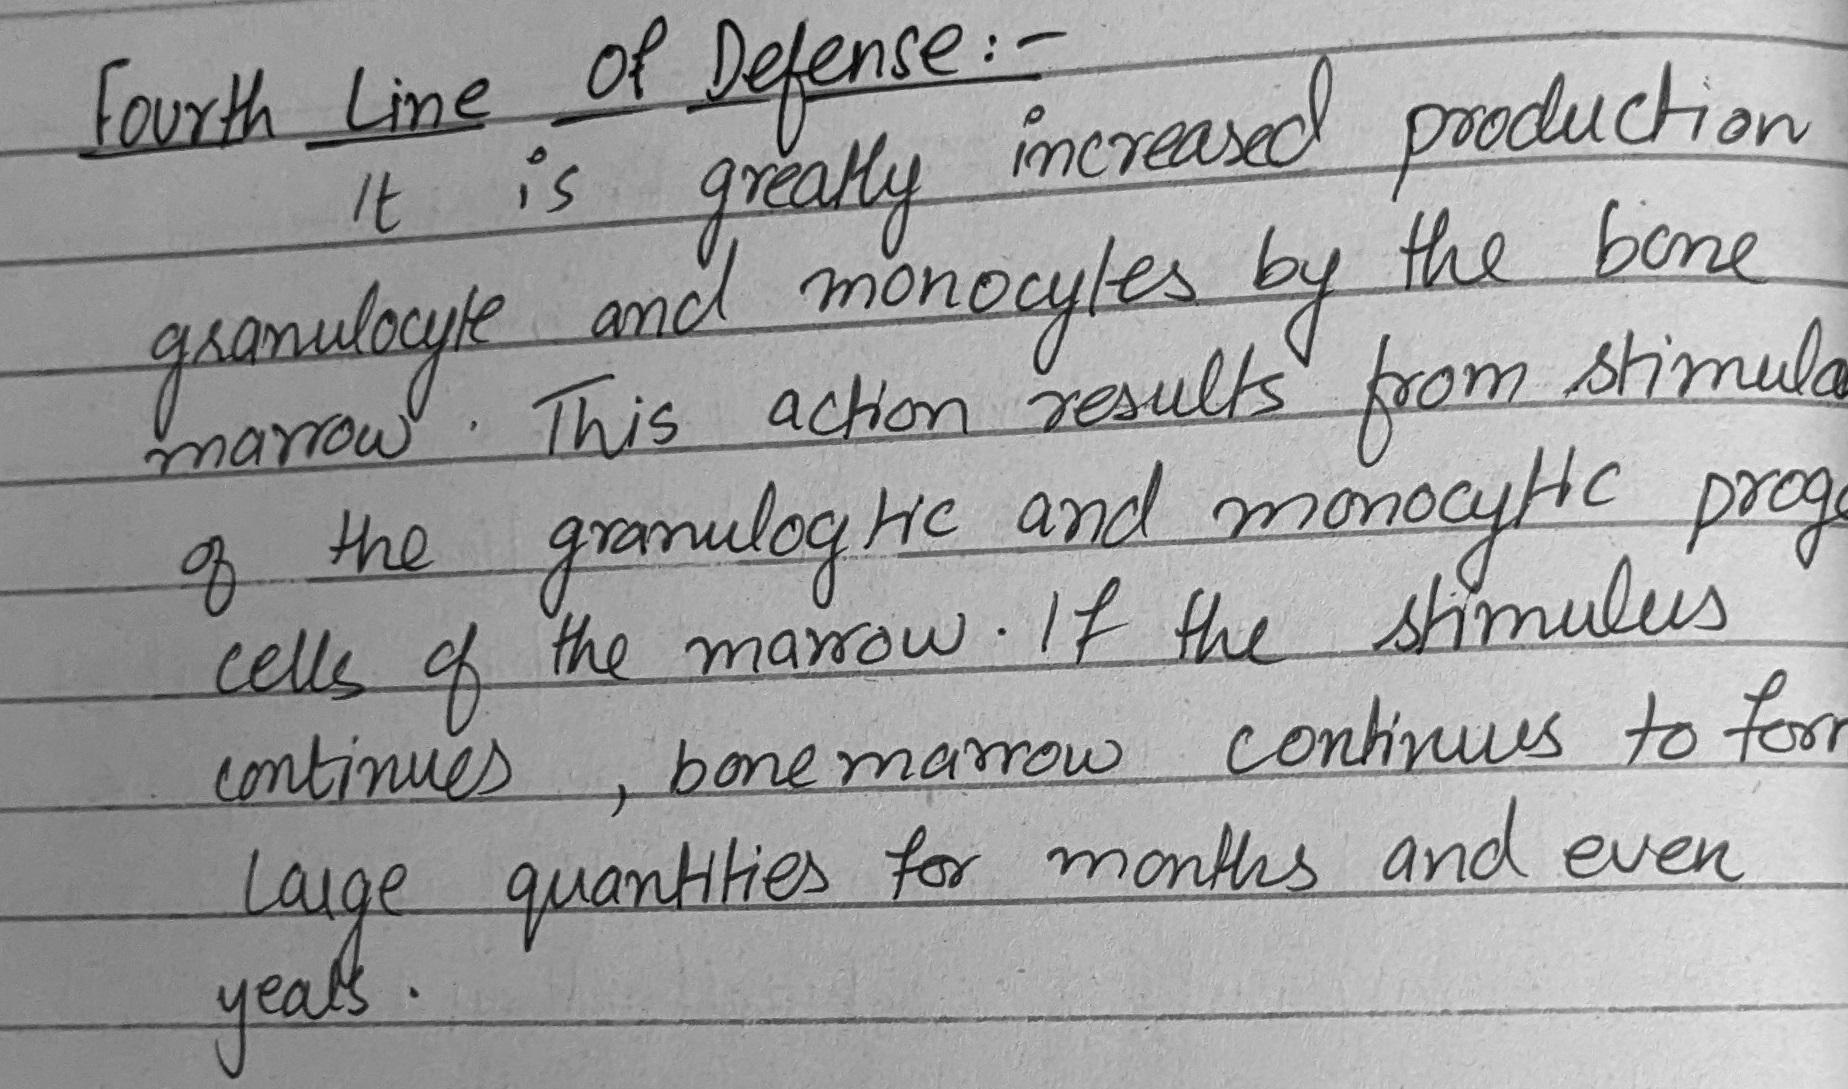 Fourth Line Of Defense:-
It is greatly increased production
granulocyte and monocytes by the bone
marrow. This action results from stimula
of the granulogtic and monocytic proge
cells of the marrow. If the stimulus
continues, bone marrow continues to for
Large quantities for months and even
years.